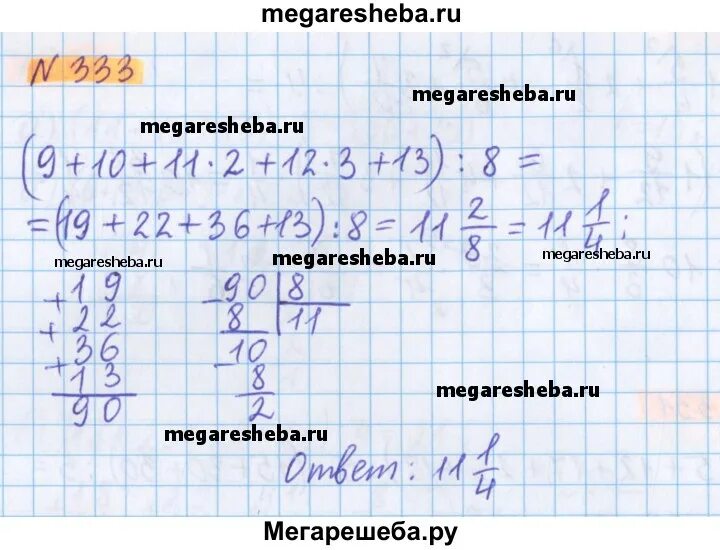 megaresheba.ru
N 333
megaresheba.ru
megaresheba.ru
(9+10+11·2+12·3+13):8=
=(19+22+36+13):8=11 2/8=11 1/4;
megaresheba.ru
megaresheba.ru
megaresheba.ru
+19
+22
+36
+13
90
-90|8
8 11
-10
8
2
megaresheba.ru
megaresheba.ru
Ответ: 11 1/4
Мегарешеба.ру